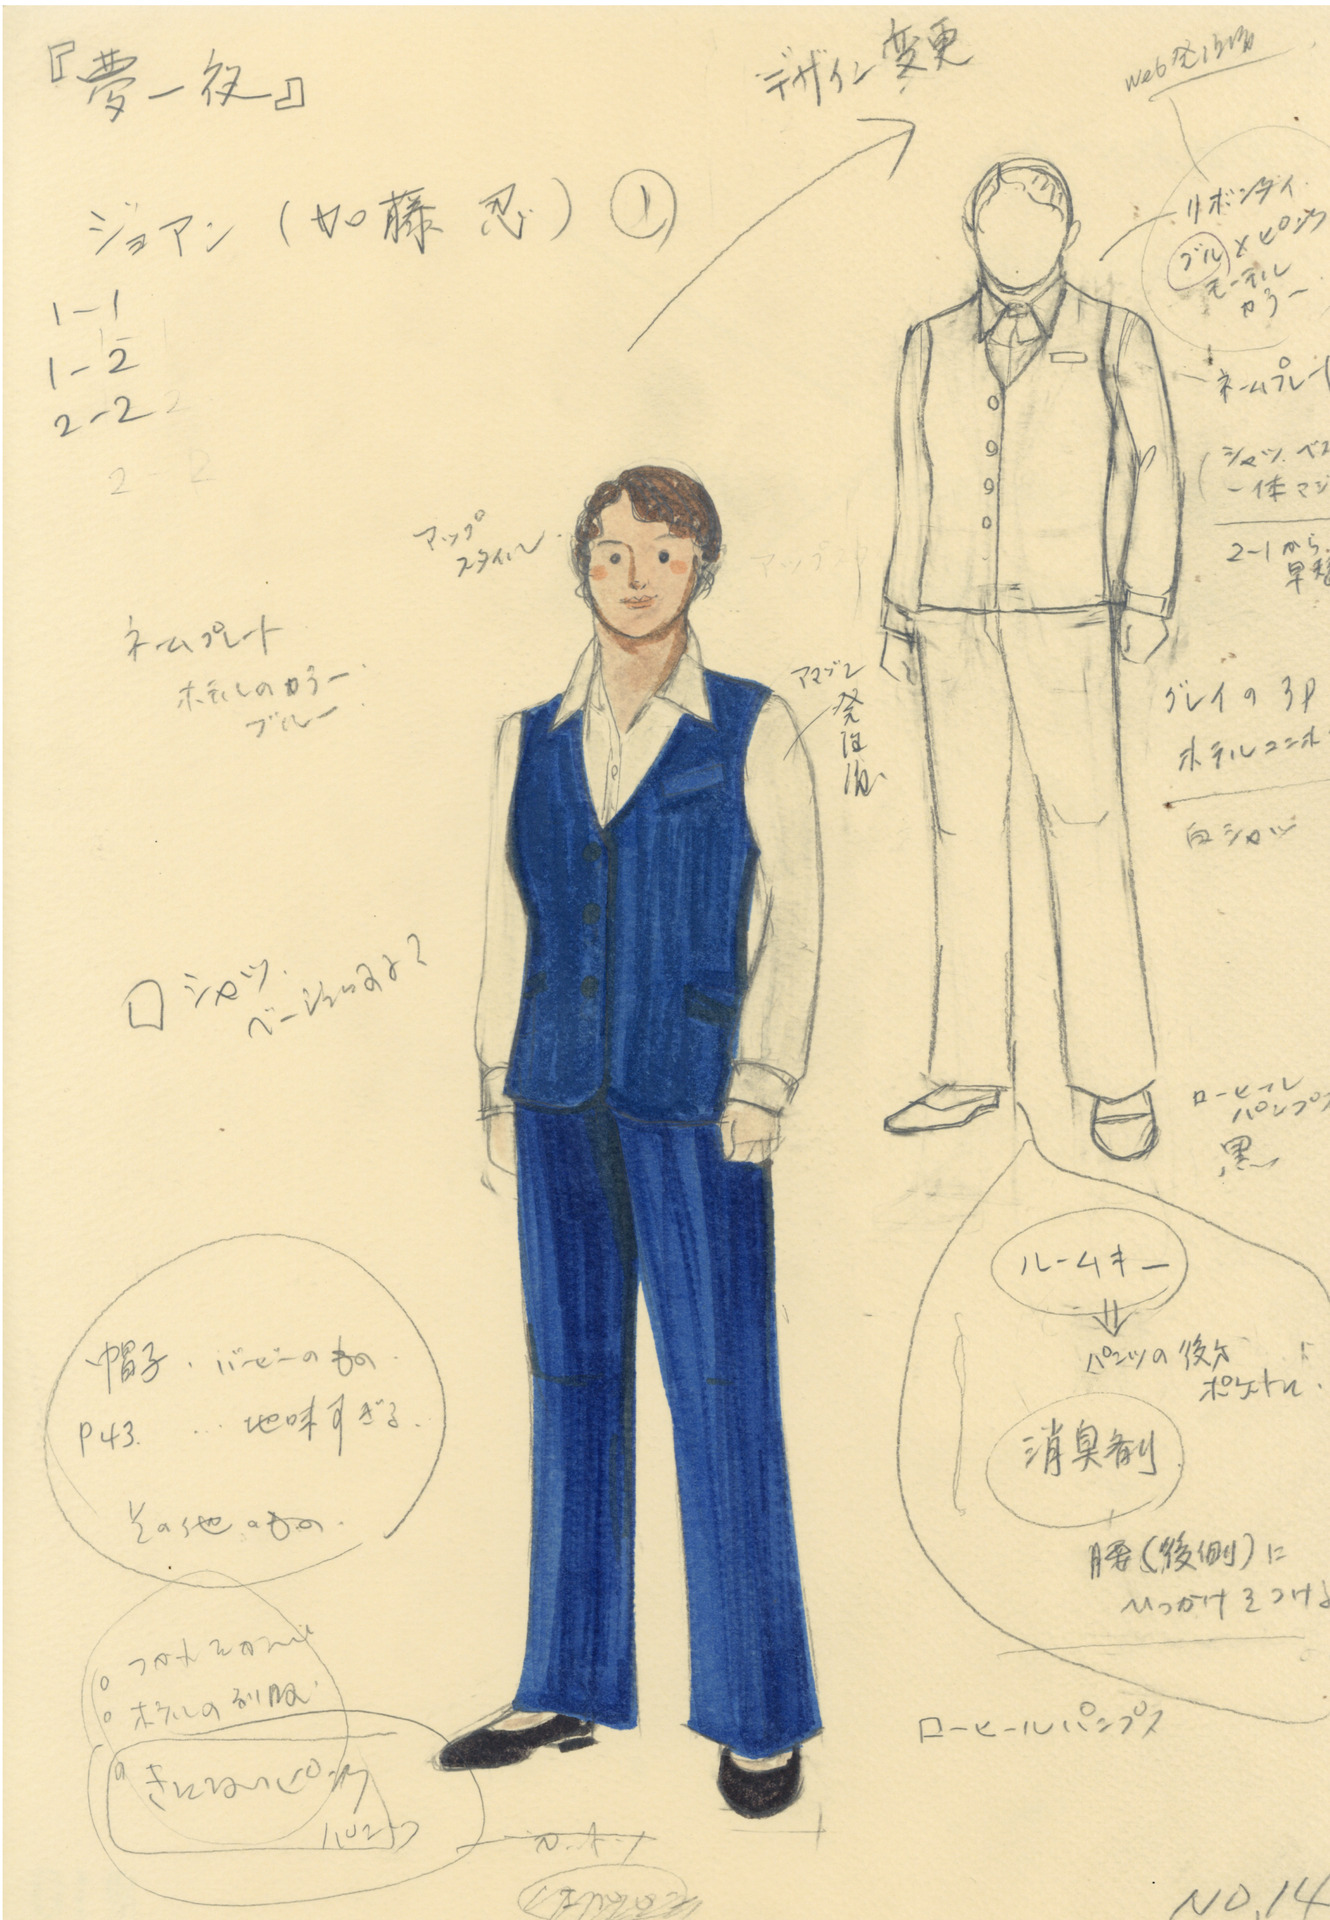 『夢一夜』
デザイン変更
web発注
ジョアン（加藤 忍）①
リボンタイ
ブル×ピンク
モーテル
カラー
1-1
1-2
2-2
2-2
ネームプレー
シャツ、ベス
一体マジ
2-1から
早
アップ
スタイル
ネームプレート
ホテルのカラー
ブルー
アマゾン
発注
グレイの3P
ホテル
白シャツ
シャツ
ローヒール
パンプス
黒
ルームキー
⇓
パンツの後
ポケットに
消臭剤
腰（後側）に
ひっかけをつける
帽子・バービーのもの
P43. …地味すぎる
その他のもの
ホテルの制服
ピンク
パンツ
ローヒールパンプス
NO.14